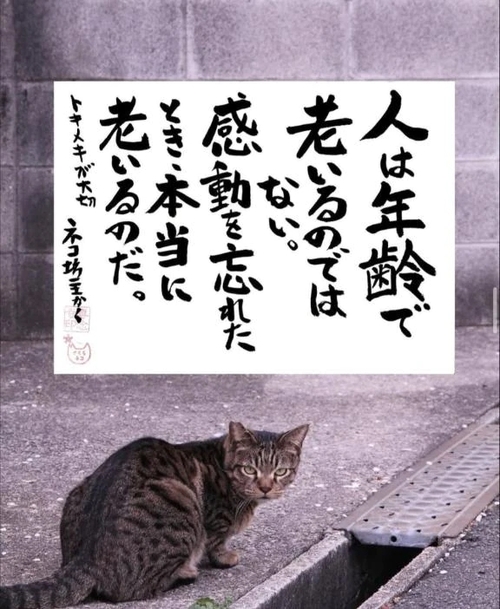 人は年齢で
老いるのでは
ない。
感動を忘れた
とき、本当に
老いるのだ。
トキメキが大切
ネコ坊主かく